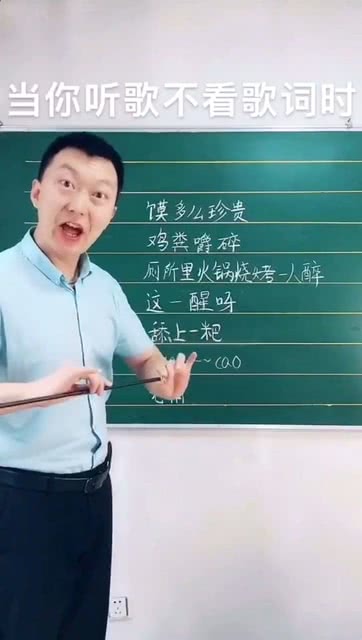 当你听歌不看歌词时
馍多么珍贵
鸡粪嚼碎
厕所里火锅烧烤一人醉
这一醒呀
舔上一粑
~~cao